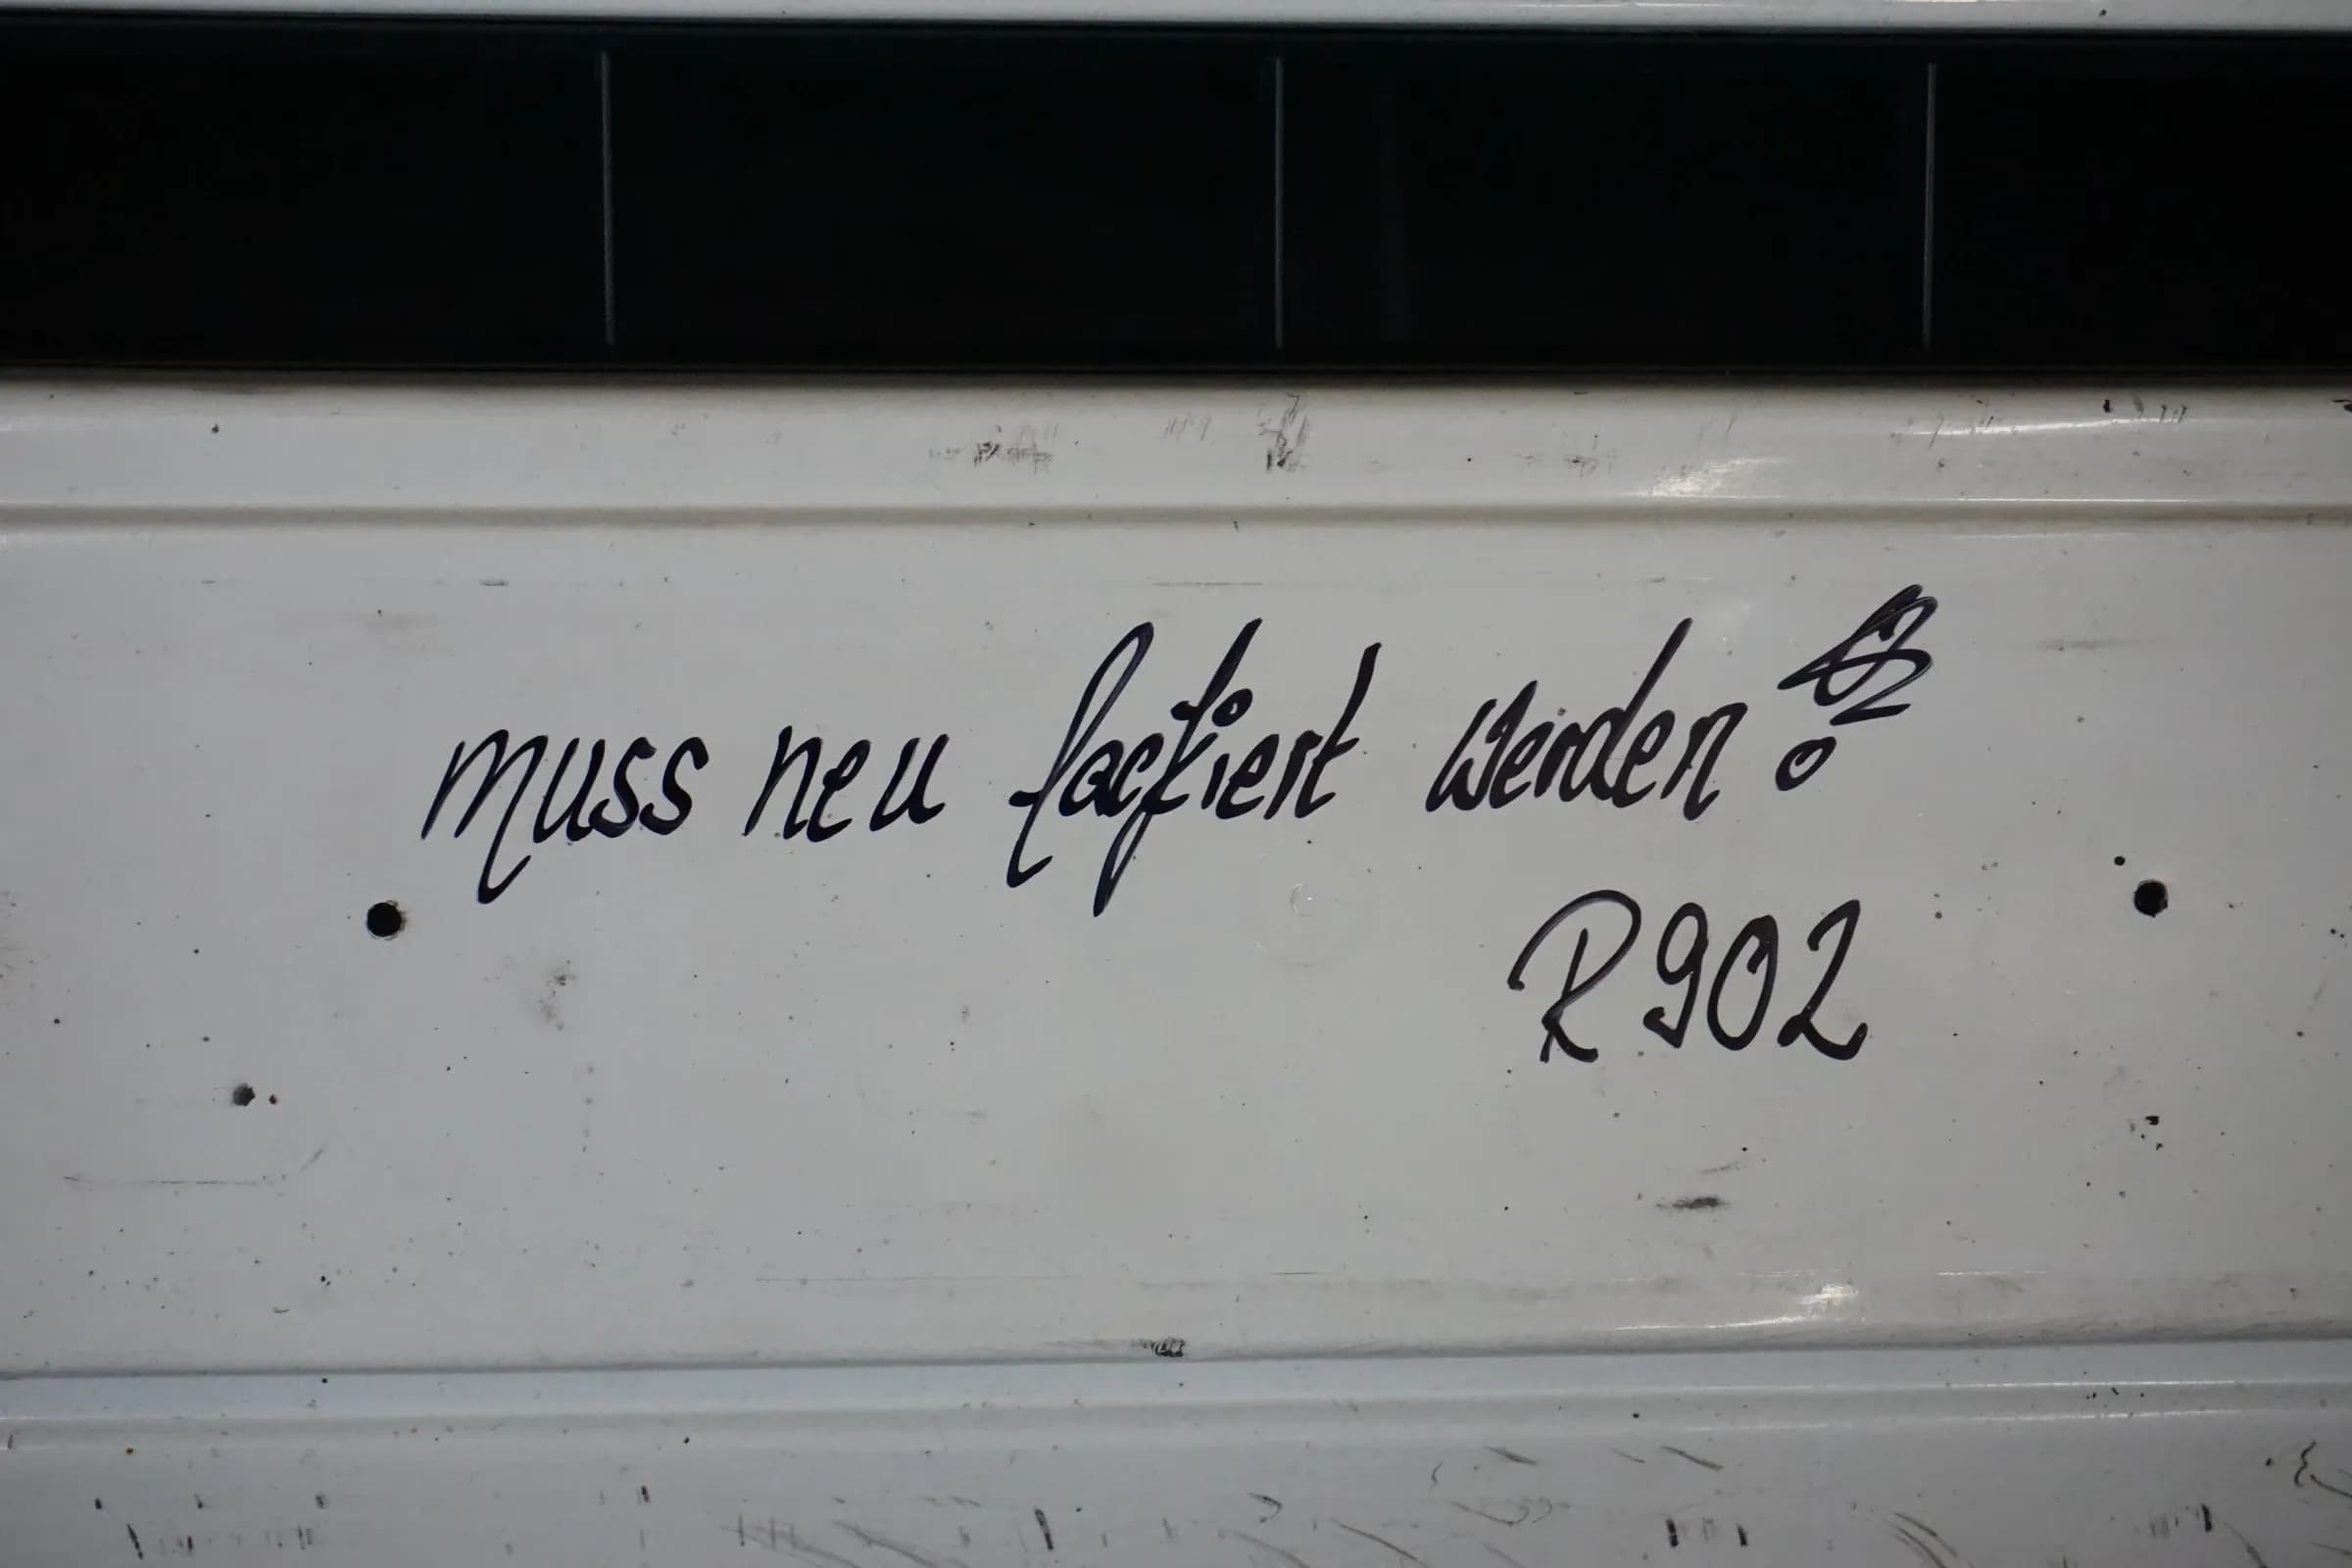 muss neu lackiert werden!
R902